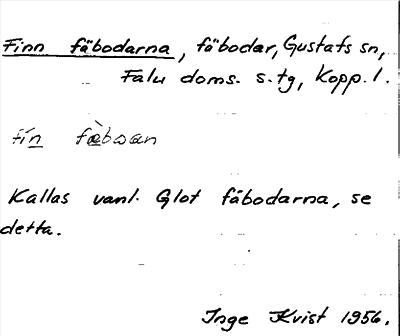 Finn fäbodarna, fäbodar, Gustafs sn,
Falu doms. s. tg, Kopp. l.
fin fæ̀bωan
Kallas vanl. Glot fäbodarna, se
detta.
Inge Kvist 1956.